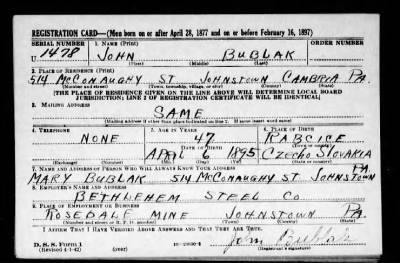 REGISTRATION CARD—(Men born on or after April 28, 1877 and on or before February 16, 1897)
SERIAL NUMBER 1. NAME (Print) ORDER NUMBER
U 1478 JOHN BUBLAK
(First) (Middle) (Last)
2. PLACE OF RESIDENCE (Print)
514 McCONAUGHY ST JOHNSTOWN CAMBRIA PA.
(Number and street) (Town, township, village, or city) (County) (State)
[THE PLACE OF RESIDENCE GIVEN ON THE LINE ABOVE WILL DETERMINE LOCAL BOARD
JURISDICTION; LINE 2 OF REGISTRATION CERTIFICATE WILL BE IDENTICAL]
3. MAILING ADDRESS
SAME
[Mailing address if other than place indicated on line 2. If same insert word same]
4. TELEPHONE 5. AGE IN YEARS 6. PLACE OF BIRTH
NONE 47 RABCICE
DATE OF BIRTH (Town or county)
APRIL 6 1895 CZECHO SLOVAKIA
(Exchange) (Number) (Mo.) (Day) (Yr.) (State or country)
7. NAME AND ADDRESS OF PERSON WHO WILL ALWAYS KNOW YOUR ADDRESS PA
MARY BUBLAK 514 McCONAUGHY ST JOHNSTOWN
8. EMPLOYER'S NAME AND ADDRESS
BETHLEHEM STEEL CO
9. PLACE OF EMPLOYMENT OR BUSINESS
ROSEDALE MINE JOHNSTOWN PA
(Number and street or R. F. D. number) (Town) (County) (State)
I AFFIRM THAT I HAVE VERIFIED ABOVE ANSWERS AND THAT THEY ARE TRUE.
D. S. S. Form 1
(Revised 4-1-42) (over) John Bublak